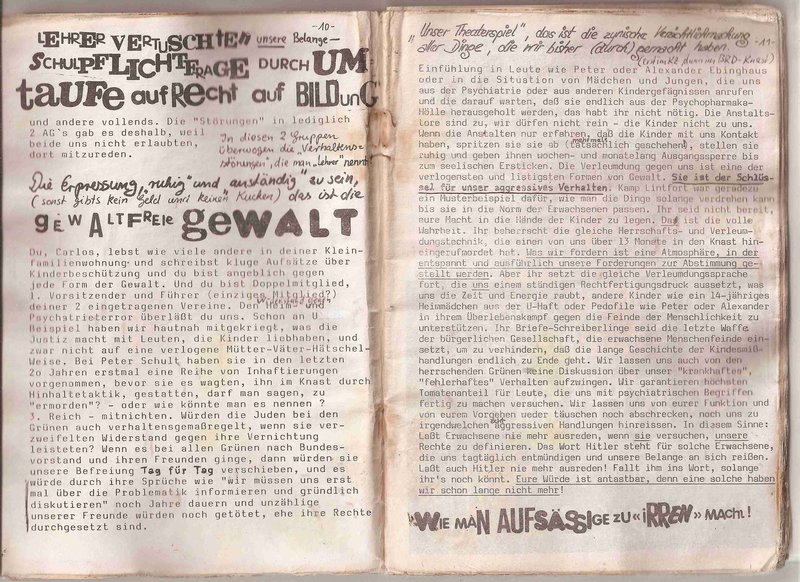 -10-
LEHRER VERTUSCHTEN unsere Belange—
SCHULPFLICHTFRAGE DURCH UM-
taufe aufRecht auf BILDunG
und andere vollends. Die "Störungen" in lediglich
2 AG`s gab es deshalb, weil
beide uns nicht erlaubten,
dort mitzureden.
In diesen 2 Gruppen
überwogen die "Verhaltens-
störungen", die man "Lehrer" nennt!
Die Erpressung "ruhig" und anständig" zu sein,
(sonst gibts kein Geld und keinen Kuchen) das ist die
GEWALTFREIE GEWALT
Du, Carlos, lebst wie viele andere in deiner Klein-
familienwohnung und schreibst kluge Aufsätze über
Kinderbeschützung und du bist angeblich gegen
jede Form der Gewalt. Und du bist Doppelmitglied,
1. Vorsitzender und Führer (einziges Mitglied?)
deiner 2 eingetragenen Vereine. Den Heim- und
Psychatrieterror überläßt du uns. Schon an U.
Beispiel haben wir hautnah mitgekriegt, was die
Justiz macht mit Leuten, die Kinder liebhaben, und
zwar nicht auf eine verlogene Mütter-Väter-Hätschel-
Weise. Bei Peter Schult haben sie in den letzten
2o Jahren erstmal eine Reihe von Inhaftierungen
vorgenommen, bevor sie es wagten, ihn im Knast durch
Hinhaltetaktik, gestatten, darf man sagen, zu
"ermorden"? - oder wie könnte man es nennen ?
3. Reich - mitnichten. Würden die Juden bei den
Grünen auch verhaltensgemaßregelt, wenn sie ver-
zweifelten Widerstand gegen ihre Vernichtung
leisteten? Wenn es bei allen Grünen nach Bundes-
vorstand und ihren Freunden ginge, dann würden sie
unsere Befreiung Tag für Tag verschieben, und es
würde durch ihre Sprüche wie "wir müssen uns erst
mal über die Problematik informieren und gründlich
diskutieren" noch Jahre dauern und unzählige
unserer Freunde würden noch getötet, ehe ihre Rechte
durchgesetzt sind.
"Unser Theaterspiel", das ist die zynische
aller Dinge, die wir bisher (durch)gemacht haben. -11-
Einfühlung in Leute wie Peter oder Alexander Ebinghaus
oder in die Situation von Mädchen und Jungen, die uns
aus der Psychiatrie oder aus anderen Kindergefängissen anrufen
und die darauf warten, daß sie endlich aus der Psychopharmaka-
Hölle herausgeholt werden, das habt ihr nicht nötig. Die Anstalts-
Tore sind zu, wir dürfen nicht rein - die Kinder nicht zu uns.
Wenn die Anstalten nur erfahren, daß die Kinder mit uns Kontakt
haben, spritzen sie sie ab (tatsächlich geschehen), stellen sie
mehrmals
ruhig und geben ihnen wochen- und monatelang Ausgangssperre bis
zum seelischen Ersticken. Die Verleumdung gegen uns ist eine der
verlogensten und listigsten Formen von Gewalt. Sie ist der Schlüs-
sel für unser aggressives Verhalten. Kamp Lintfort war geradezu
ein Musterbeispiel dafür, wie man die Dinge solange verdrehen kann
bis sie in die Norm der Erwachsenen passen. Ihr seid nicht bereit,
eure Macht in die Hände der Kinder zu legen. Das ist die volle
Wahrheit. Ihr beherrscht die gleiche Herrschafts- und Verleum-
dungstechnik, die einen von uns über 13 Monate in den Knast hin-
eingeruforder hat. Was wir fordern ist eine Atmosphäre, in der
entspannt und ausführlich unsere Forderungen zur Abstimmung ge-
stellt werden. Aber ihr setzt die gleiche Verleumdungssprache
fort, die uns einem ständigen Rechtfertigungsdruck aussetzt, was
uns die Zeit und Energie raubt, andere Kinder wie ein 14-jähriges
Heimmädchen aus der U-Haft oder Pedofile wie Peter oder Alexander
in ihrem Überlebenskampf gegen die Feinde der Menschlichkeit zu
unterstützen. Ihr Briefe-Schreiberlinge seid die letzte Waffe
der bürgerlichen Gesellschaft, die erwachsene Menschenfeinde ein-
setzt, um zu verhindern, daß die lange Geschichte der Kindesmiß-
handlungen endlich zu Ende geht. Wir lassen uns auch von den
herrschenden Grünen keine Diskussion über unser "krankhaftes",
"fehlerhaftes" Verhalten aufzwingen. Wir garantieren höchsten
Tomatenanteil für Leute, die uns mit psychiatrischen Begriffen
fertig zu machen versuchen. Wir lassen uns von eurer Funktion und
von eurem Vorgehen weder täuschen noch abschrecken, noch uns zu
irgendwelchen aggressiven Handlungen hinreissen. In diesem Sinne:
Laßt Erwachsene nie mehr ausreden, wenn sie versuchen, unsere
Rechte zu definieren. Das Wort Hitler steht für solche Erwachsene,
die uns tagtäglich entmündigen und unsere Belange an sich reißen.
Laßt auch Hitler nie mehr ausreden! Fallt ihm ins Wort, solange
ihr's noch könnt. Eure Würde ist antastbar, denn eine solche haben
wir schon lange nicht mehr!
WIE MAN AUFSÄSSIGE ZU «iRREN» MACht!